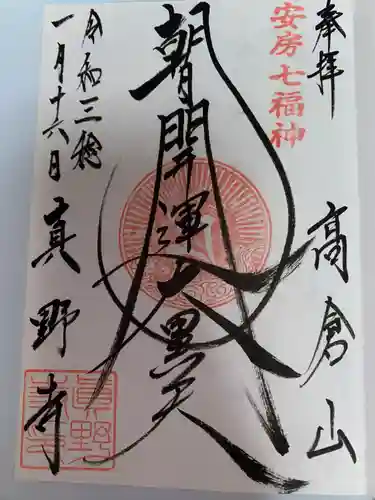 奉拝
安房七福神
高倉山
朝開運大黒天
令和三年
一月十六日
真野寺